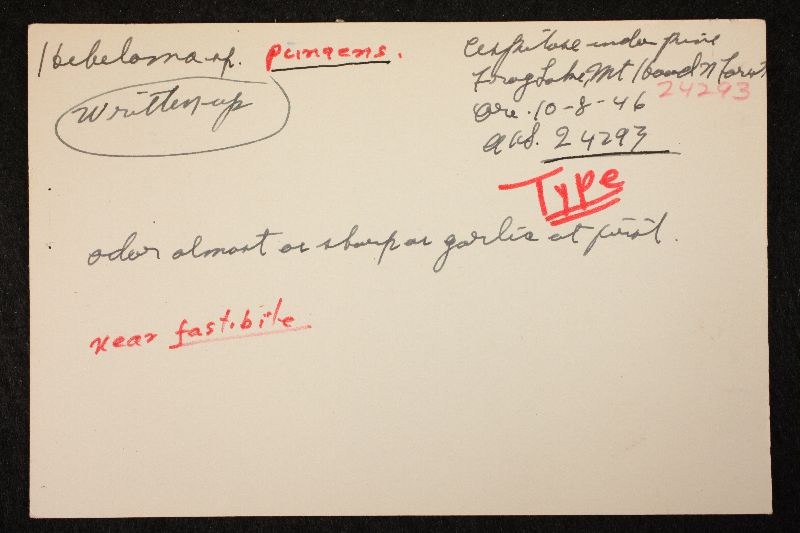 Hebeloma sp. pungens.
Written-up
Cespitose under pine
Frog Lake, Mt Hood N Forest
24293
Ore. 10-8-46
AHS. 24293
Type
odor almost as sharp as garlic at first.
near fastibile